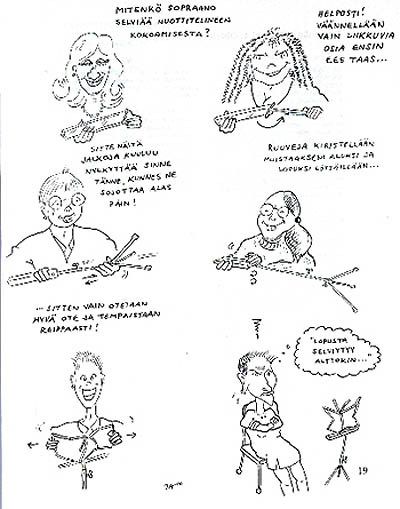 MITENKÖ SOPRAANO
SELVIÄÄ NUOTTITELINEEN
KOKOAMISESTA?
HELPOSTI!
VÄÄNNELLÄÄN
VAIN LIIKKUVIA
OSIA ENSIN
EES TAAS...
SITTE NÄITÄ
JALKOJA KUULUU
NYLKYTTÄÄ SINNE
TÄNNE, KUNNES NE
SOJOTTAA ALAS
PÄIN!
RUUVEJA KIRISTELLÄÄN
MUISTAAKSENI ALUKSI JA
LOPUKSI LÖYSÄILLÄÄN...
...SITTEN VAIN OTETAAN
HYVÄ OTE JA TEMPAISTAAN
REIPPAASTI!
"LOPUSTA
SELVIYTYY
ALTTOKIN..."
19